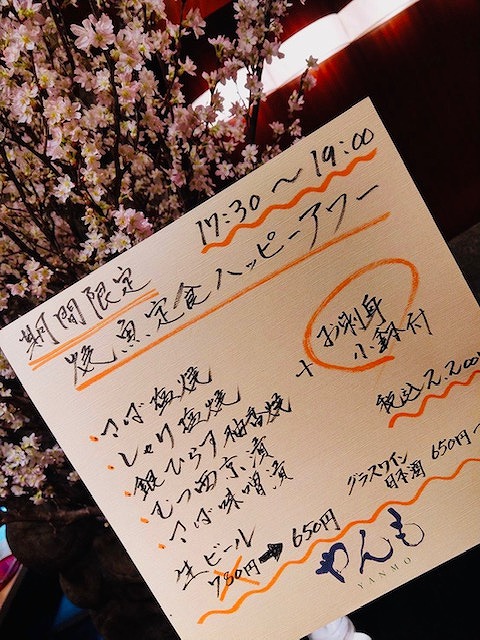 17:30～19:00
期間限定
焼魚定食ハッピーアワー
・さば塩焼
・しゃけ塩焼
・銀ひらす柚香焼
・むつ西京漬
・さば味噌漬
+ お刺身
小鉢付
税込2,200
グラスワイン
日本酒 650円～
生ビール
780円➡650円
やんも
YANMO